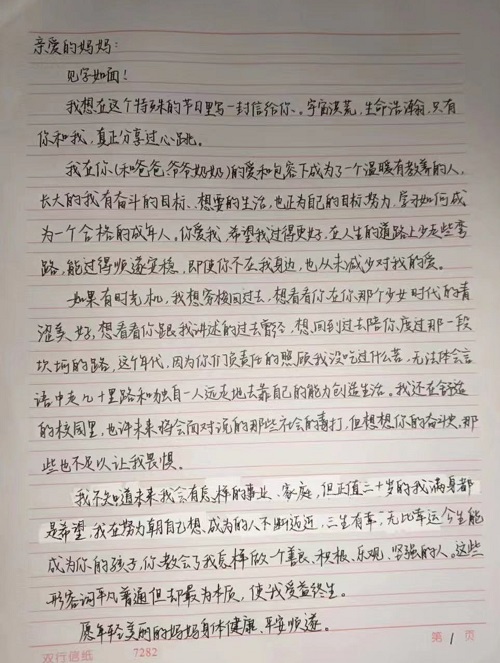 亲爱的妈妈:
见字如面!
我想在这个特殊的节日里写一封信给你、宇宙洪荒,生命浩瀚,只有
你和我,真正分享过心跳。
我在你(和爸爸,爷爷奶奶)的爱和包容下成为了一个温暖有教养的人,
长大的我有奋斗的目标、想要的生活,也正为自己的目标努力,学习如何成
为一个合格的成年人。你爱我,希望我过得更好,在人生的道路上少走些弯
路,能过得顺遂安稳,即使你不在我身边,也从未减少对我的爱。
如果有时光机,我想穿梭回过去,想看看你在你那个少女时代的青
涩美好,想看看你跟我讲述的过去曾经,想回到过去陪你度过那一段
坎坷的路,这个年代,因为你们负责任的照顾我没吃过什么苦,无法体会言
语中走几十里路和独自一人远走他去靠自己的能力创造生活。我还在舒适
的校园里,也许未来将会面对说的那些社会的毒打,但想想你的奋斗史,那
些也不足以让我畏惧。
我不知道未来我会有怎样的事业、家庭,但正值二十岁的我满身都
是希望,我在努力朝自己想成为的人不断迈近,三生有幸,无比幸运今生能
成为你的孩子,你教会了我怎样做一个善良、积极、乐观、坚强的人。这些
形容词平凡普通但却最为本质,使我受益终生。
愿年轻美丽的妈妈身体健康、平安顺遂。
双行信纸 7282 第 1 页